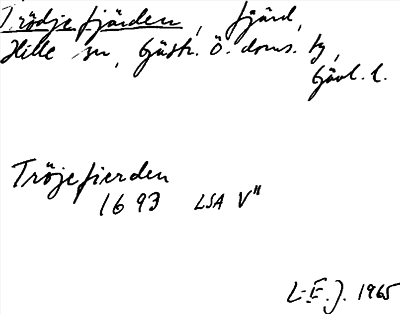 Trödjefjärden, fjärd,
Hille sn, Gästr. Ö. doms. tg,
Gävl. l.
Tröjefierden
1693 LSA V"
L-E.J. 1965